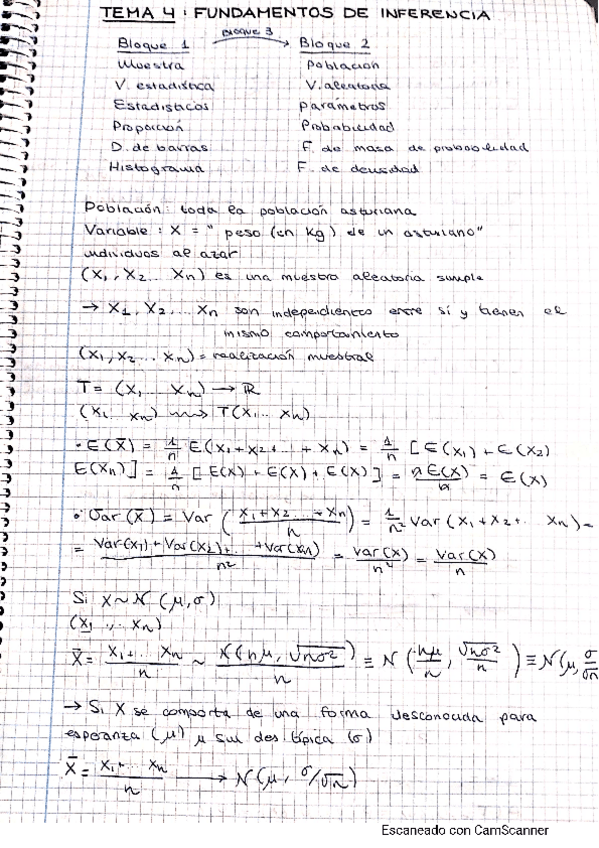 TEMA 4: FUNDAMENTOS DE INFERENCIA
Bloque 1 Bloque 3 → Bloque 2
Muestra Población
V. estadística V. aleatoria
Estadísticos Parámetros
Proporción Probabilidad
D. de barras F. de masa de probabilidad
Histograma F. de densidad
Población: toda la población asturiana
Variable: X = "peso (en kg) de un asturiano"
individuos al azar
(X1, X2... Xn) es una muestra aleatoria simple
→ X1, X2, ... Xn son independientes entre sí y tienen el
mismo comportamiento
(x1, x2... xn) = realización muestral
T = (X1 ... Xn) → ℝ
(X1 ... Xn) ⇝ T(X1... Xn)
· E(X̄) = 1/n E(X1+X2+...+Xn) = 1/n [E(X1) + E(X2)
E(Xn)] = 1/n [E(X) + E(X) + E(X)] = nE(X)/n = E(X)
· Var(X̄) = Var((X1+X2...+Xn)/n) = 1/n² Var(X1+X2+... Xn) =
= (Var(X1)+Var(X2)+...+Var(Xn))/n² = Var(X)/n² = Var(X)/n
Si X~N(μ,σ)
(X1 ... Xn)
X̄ = (X1+... Xn)/n ~ N(nμ, √nσ²)/n ≡ N(nμ/n, √nσ²/n) ≡ N(μ, σ/√n
→ Si X se comporta de una forma desconocida para
esperanza (μ) μ sul des. típica (σ)
X̄ = (X1+... Xn)/n → N(μ, σ/√n)
Escaneado con CamScanner